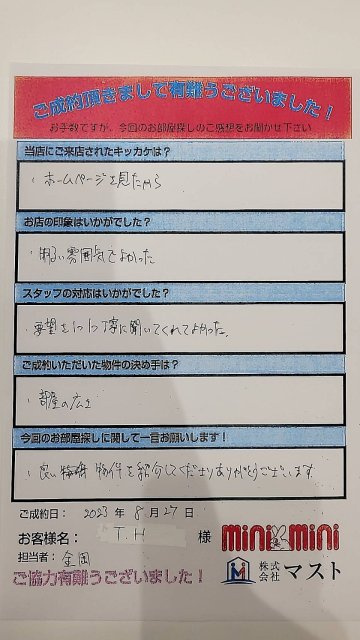 ご成約頂きまして有難うございました！
お手数ですが、今回のお部屋探しのご感想をお聞かせ下さい
当店にご来店されたキッカケは？
・ホームページを見たから
お店の印象はいかがでした？
・明るい雰囲気でよかった
スタッフの対応はいかがでした？
・要望を1つ1つ丁寧に聞いてくれてよかった。
ご成約いただいた物件の決め手は？
・部屋の広さ
今回のお部屋探しに関して一言お願いします！
・良い物件を紹介してくださりありがとうございます
ご成約日： 2023 年 8 月 27 日
お客様名： T.H 様
担当者：金岡
ご協力有難うございました！
mini mini
株式会社 マスト